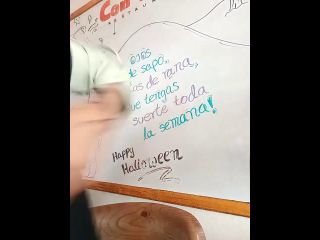 Con
RESTAURA
ojos
de sapo,
as de rana,
ue tengas
suerte toda
la semana!
Happy
Halloween